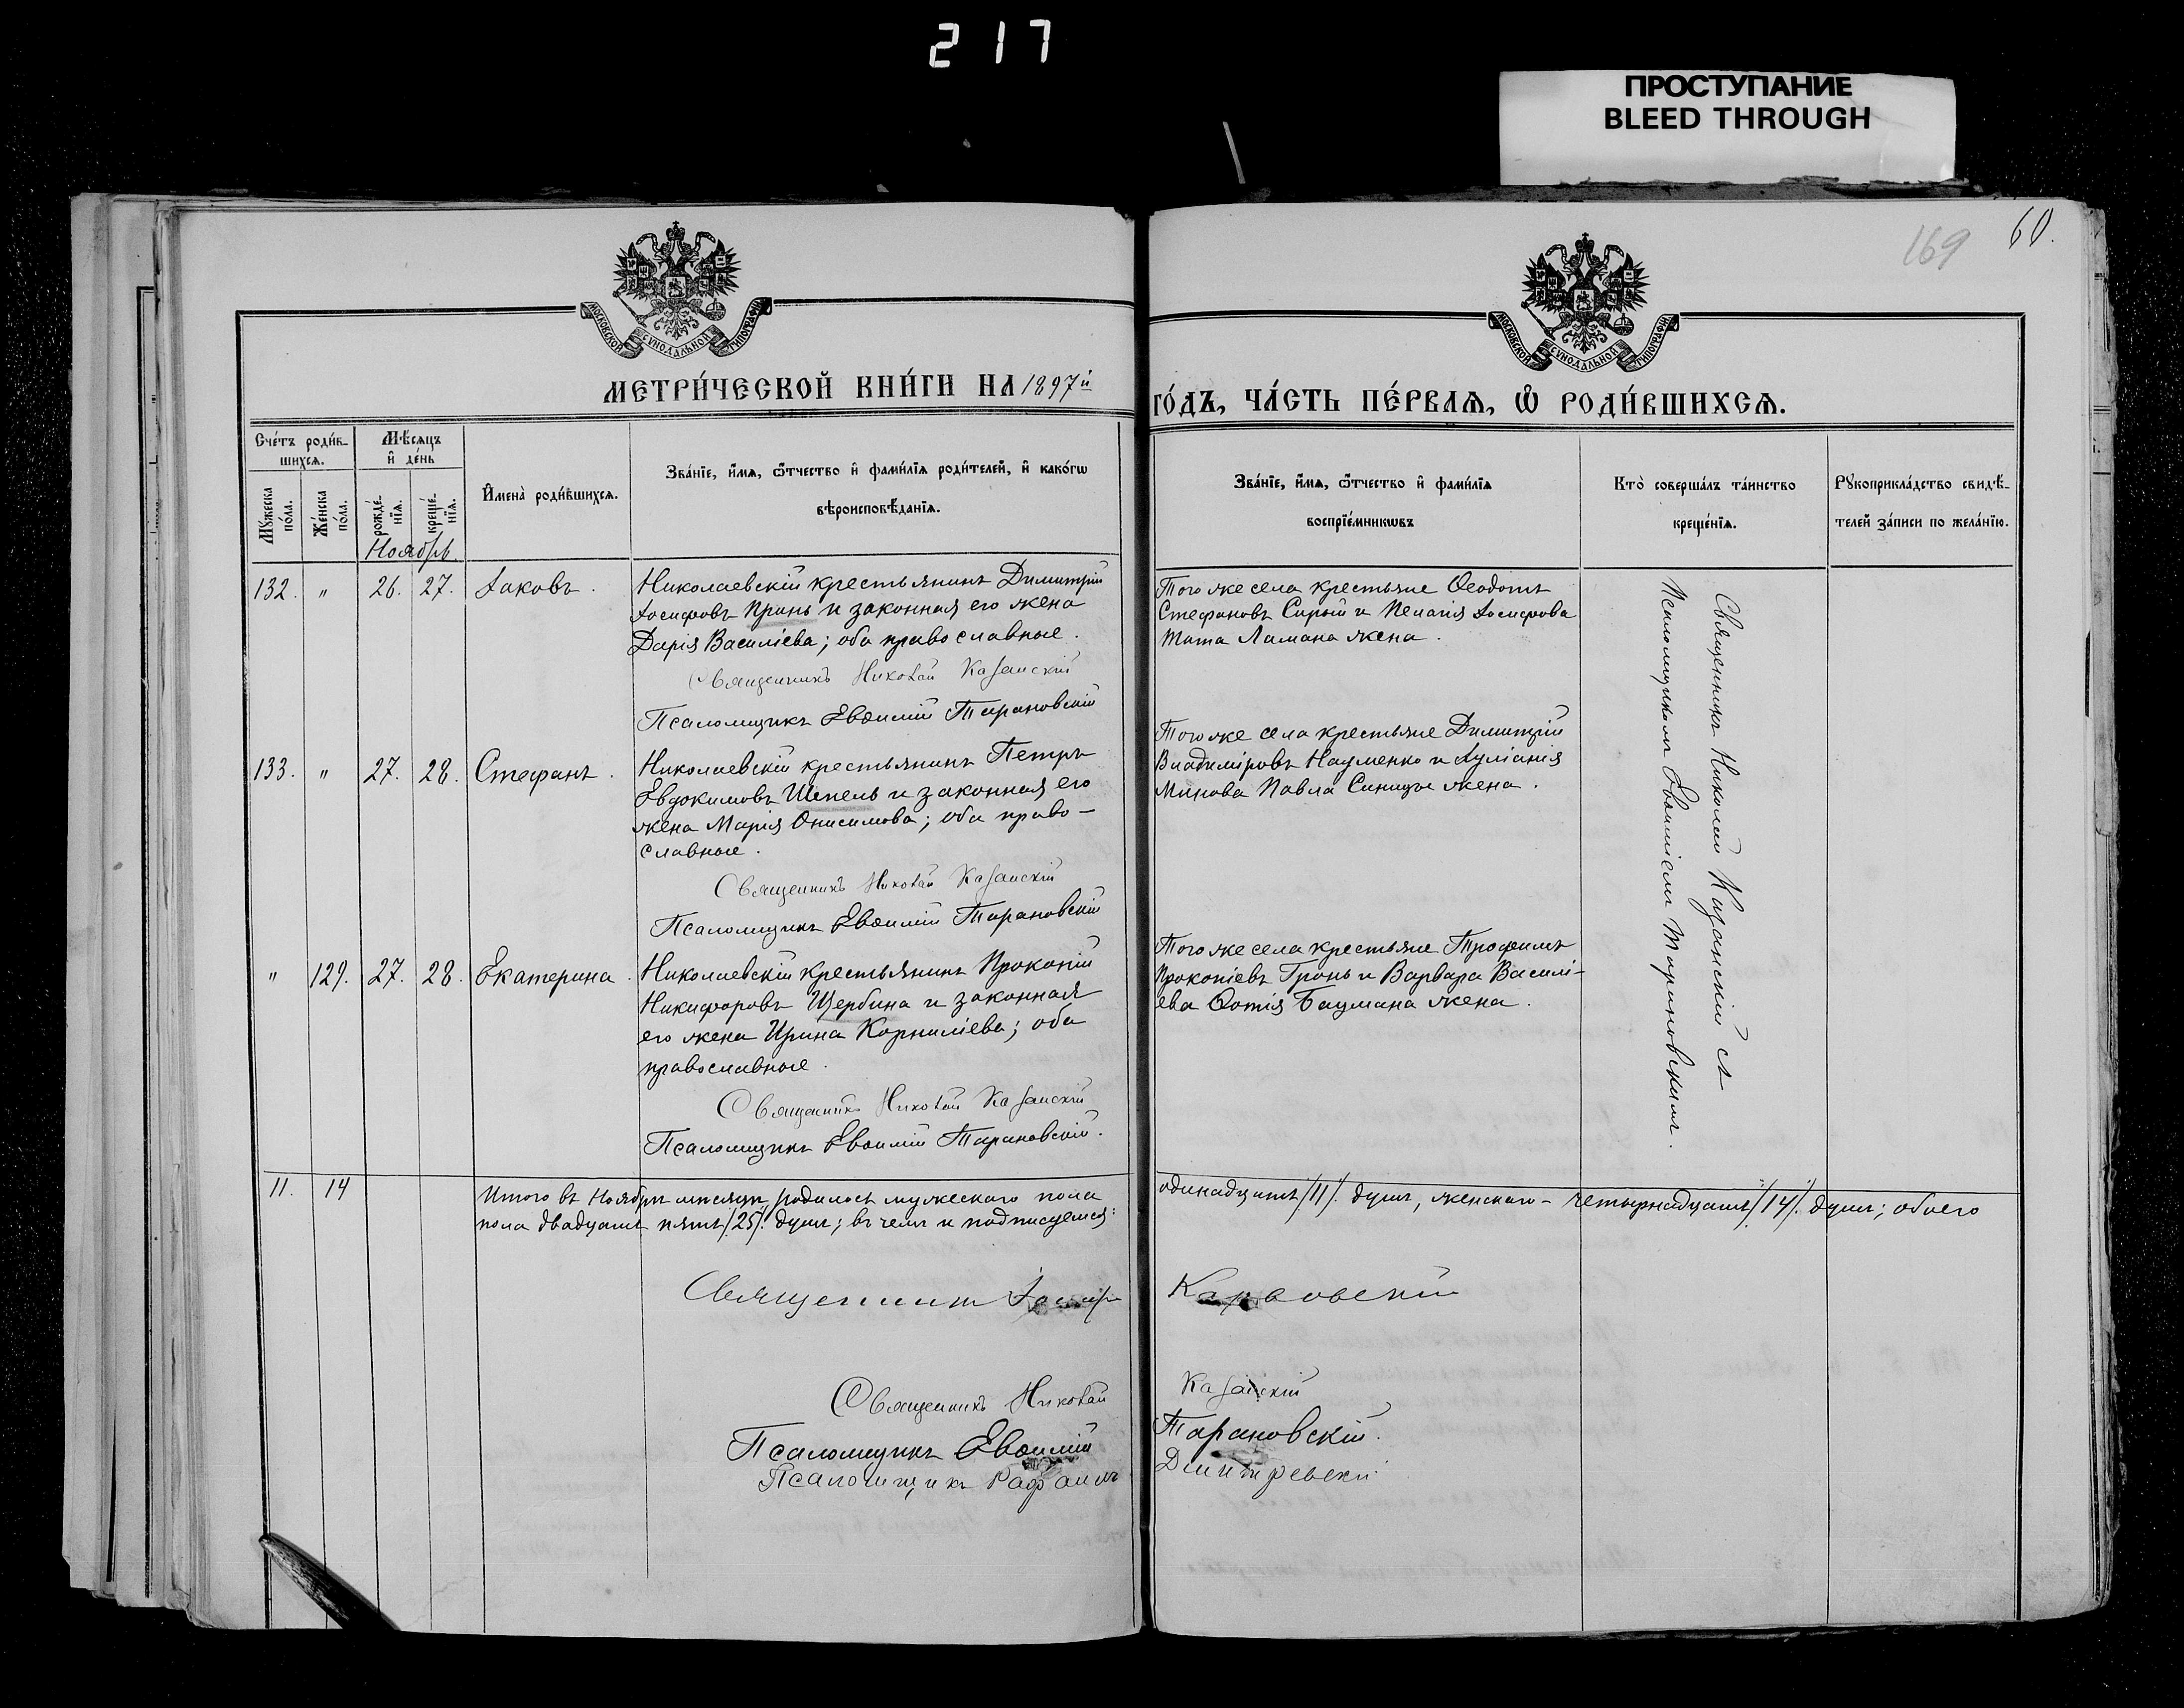 217
ПРОСТУПАНИЕ
BLEED THROUGH
169
60.
МОСКОВСКОЙ СѴНОДАЛЬНОЙ ТИПОГРАФІИ
МОСКОВСКОЙ СѴНОДАЛЬНОЙ ТИПОГРАФІИ
МЕТРИ́ЧЕСКОЙ КНИ́ГИ НА 1897й
ГО́ДЪ, ЧА́СТЬ ПЕ́РВАЯ, Ѽ РОДИ́ВШИХСЯ.
Сче́тъ роди́в-
шихся.
Мѣ́сяцъ
и҆ де́нь
Мꙋ́жеска по́ла.
Же́нска по́ла.
рожде́-нїя.
креще́-нїя.
И҆мена̀ роди́вшихся.
Зва́нїе, и҆́мя, ѻ҆́тчество и҆ фами́лїя роди́телей, и҆ како́гѡ
вѣроисповѣ́данїя.
Зва́нїе, и҆́мя, ѻ҆́тчество и҆ фами́лїя
воспрїе́мникѡвъ
Кто̀ соверша́лъ та́инство
креще́нїя.
Рꙋкоприкла́дство свидѣ́-
телей за́писи по жела́нїю.
Ноябрь
132. " 26. 27. Іаковъ.
Николаевскій крестьянинъ Димитрій
Іосифовъ Пронь и законная его жена
Дарія Василіева; оба православные.
Священникъ Николай Казанскій
Псаломщикъ Евѳимій Тарановскій
Того же села крестьяне Ѳеодотъ
Стефановъ Сирый и Пелагія Іосифова
Ламана жена.
133. " 27. 28. Стефанъ.
Николаевскій крестьянинъ Петръ
Евдокимовъ Шепель и законная его
жена Марія Онисимова; оба право-
славные.
Священникъ Николай Казанскій
Псаломщикъ Евѳимій Тарановскій
Того же села крестьяне Димитрій
Владиміровъ Науменко и Іуліанія
Минова Павла Синицы жена.
" 129. 27. 28. Екатерина.
Николаевскій крестьянинъ Прокопій
Никифоровъ Щербина и законная
его жена Ирина Корниліева; оба
православные.
Священникъ Николай Казанскій
Псаломщикъ Евѳимій Тарановскій.
Того же села крестьяне Трофимъ
Прокопіевъ Гронь и Варвара Василі-
ева Фотія Баумана жена.
Священникъ Николай Казанскій съ
Псаломщикомъ Евѳиміемъ Тарановскимъ.
11. 14
Итого въ Ноябрѣ мѣсяцѣ родилось мужескаго пола одинадцать /11/. душъ, женскаго - четырнадцать /14/. душъ; обоего
пола двадцать пять /25/. душъ; въ чемъ и подписуемся:
Священникъ Іосифъ Карвовскій
Священникъ Николай Казанскій
Псаломщикъ Евѳимій Тарановскій.
Псаломщикъ Рафаилъ